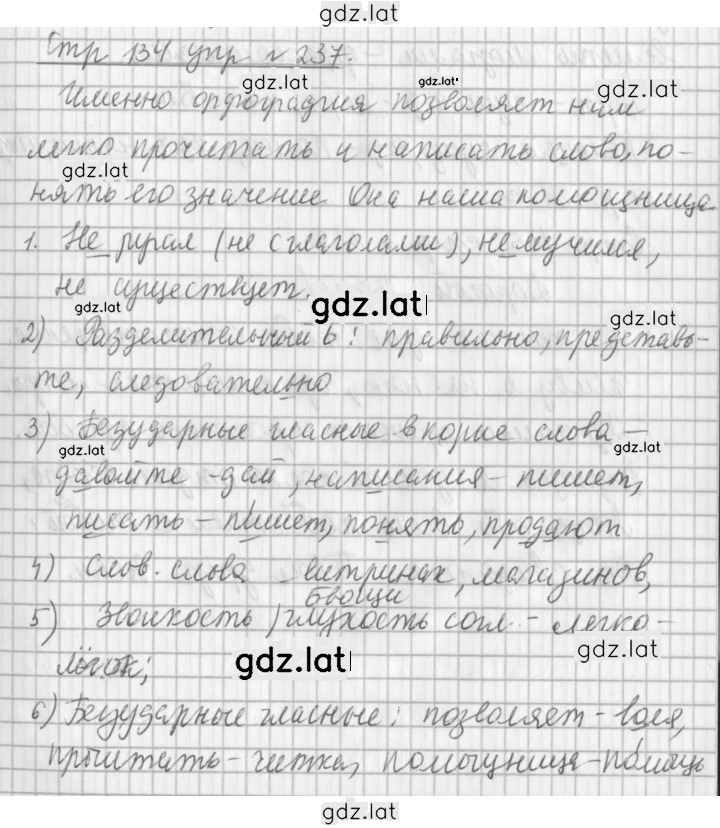 gdz.lat
Стр 134 упр № 237.
gdz.lat gdz.lat gdz.lat
Именно орфография позволяет нам
легко прочитать и написать слово, по-
gdz.lat
нять его значение. Она наша помощница
1. Не играл (не с глаголами), не мучился,
не существует.
gdz.lat gdz.lat gdz.lat
2) Разделительный ь: правильно, представь-
те, следовательно
3) Безударные гласные в корне слова –
gdz.lat gdz.lat
давайте - дай, написания – пишет,
писать – пишет, понять, продают
4) Слов. слова – витринах, магазинов,
овощи
5) Звонкость/глухость согл. – легко –
gdz.lat gdz.lat
лёгок;
6) Безударные гласные: позволяет – воля,
прочитать – читка, помощница – помощь
gdz.lat